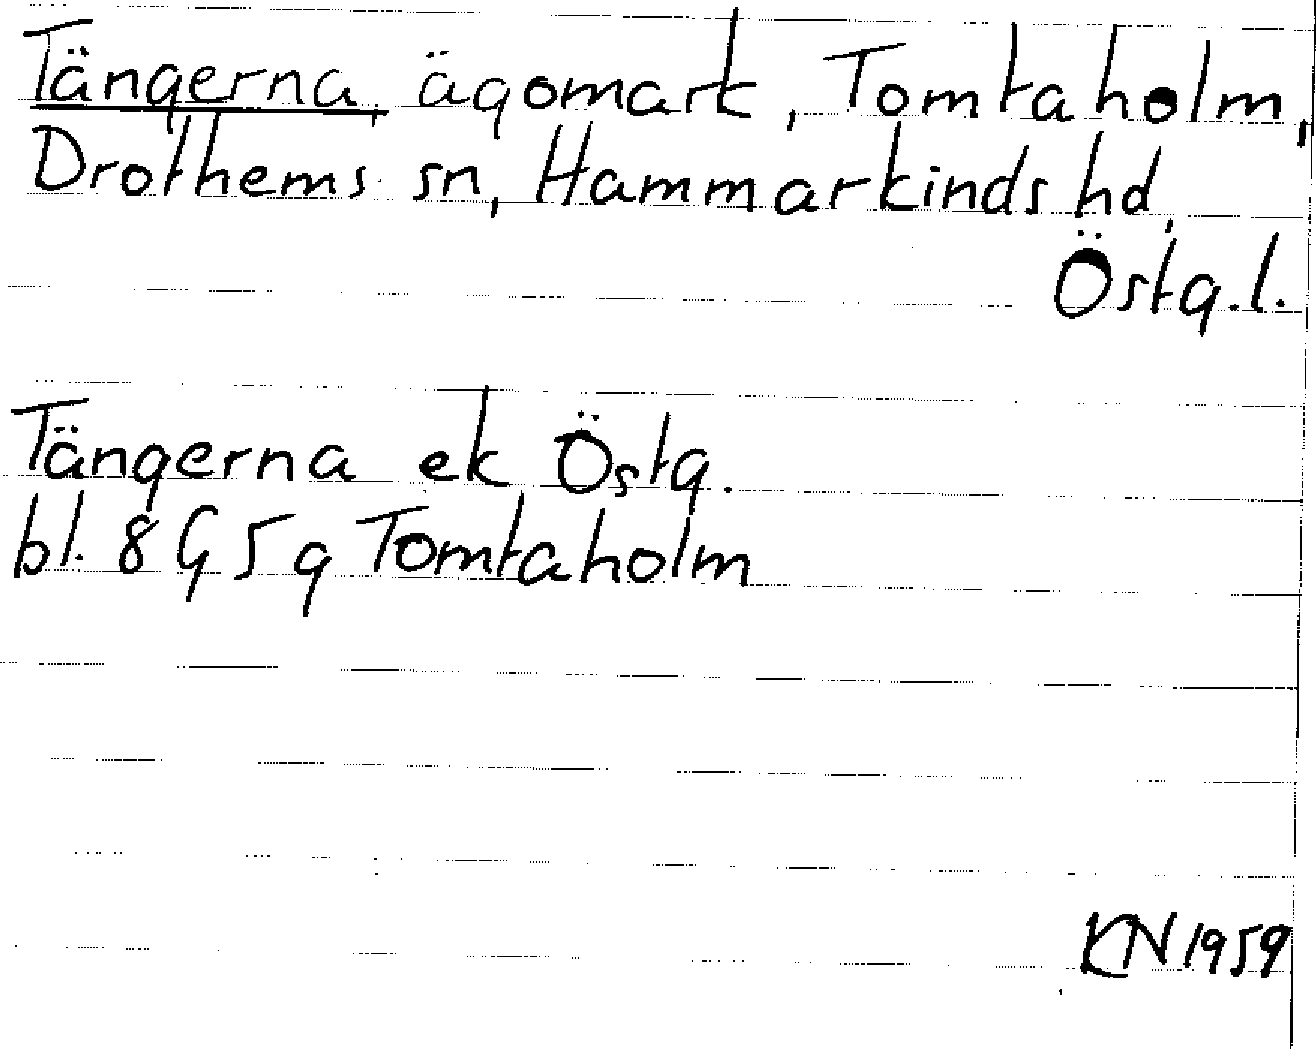 Tängerna, ägomark, Tomtaholm,
Drothems sn, Hammarkinds hd,
Östg.l.
Tängerna ek Östg.
bl. 8 G 5 g Tomtaholm
KN 1959